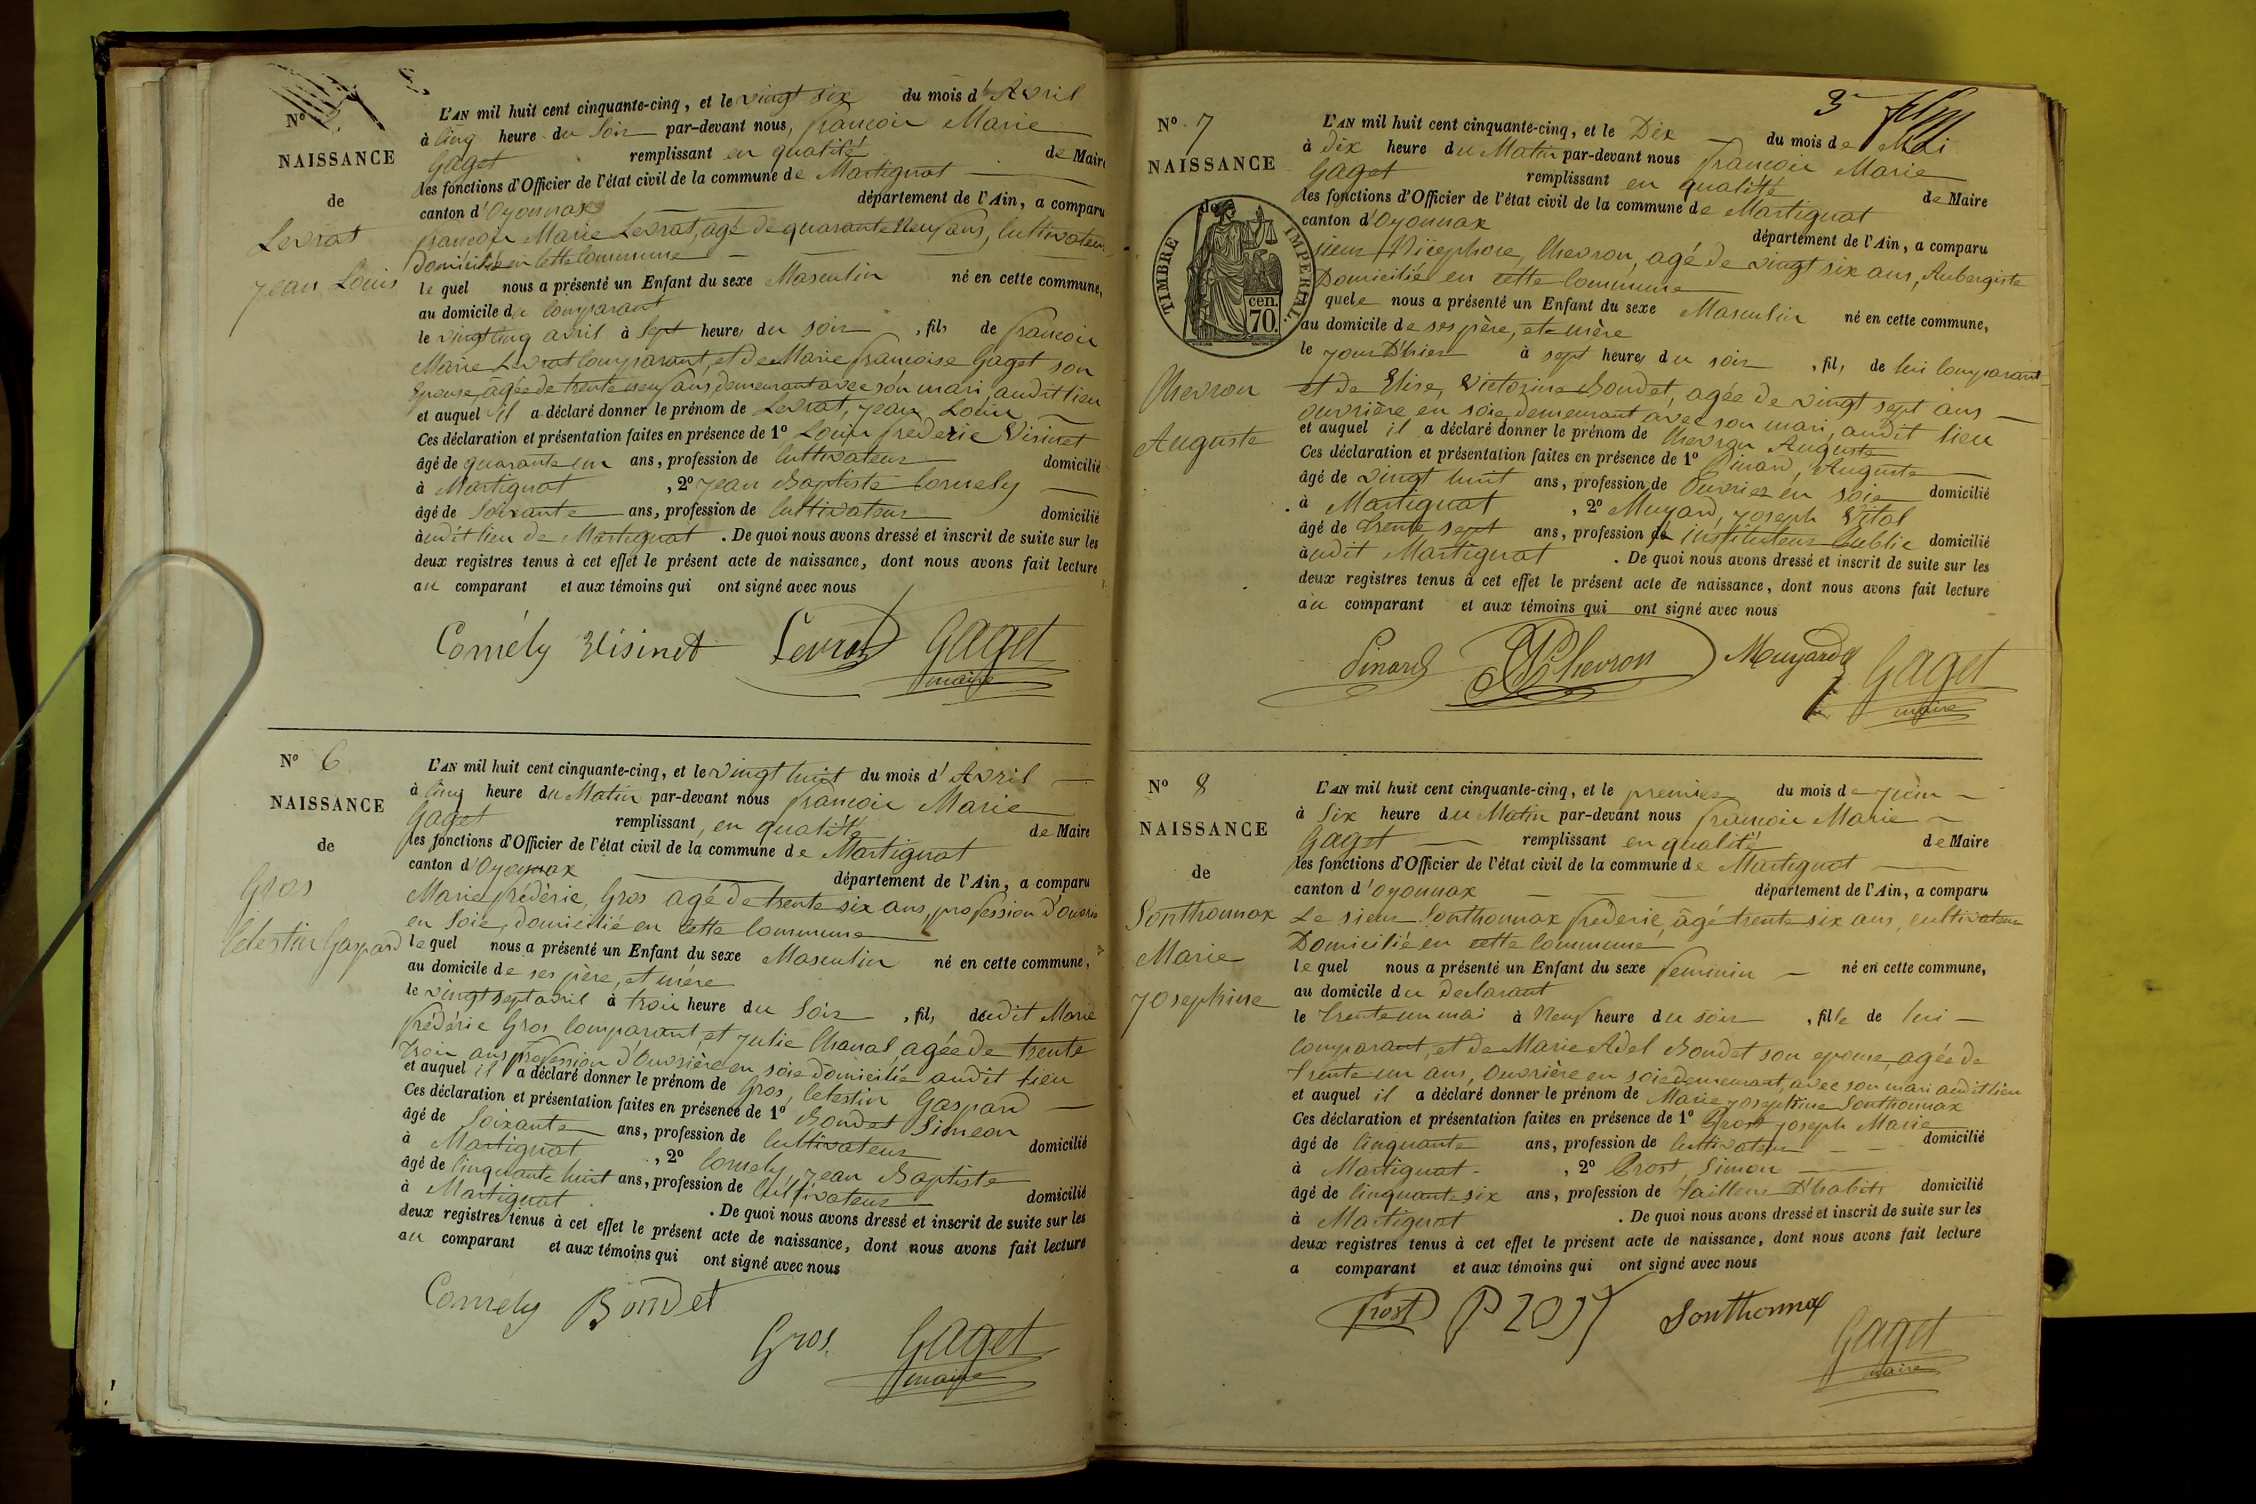 N°
NAISSANCE
de
Levrat
Jean Louis
L'AN mil huit cent cinquante-cinq, et le vingt six du mois d'Avril
à cinq heure du Soir par-devant nous, françois Marie
Gaget remplissant en qualité de Maire
les fonctions d'Officier de l'état civil de la commune de Martignat
canton d'Oyonnax département de l'Ain, a comparu
françois Marie Levrat, agé de quarante neuf ans, Cultivateur,
domicilié en cette commune
le quel nous a présenté un Enfant du sexe Masculin né en cette commune,
au domicile du comparant
le vingt cinq avril à Sept heures du soir, fils de françois
Marie Levrat comparant, et de Marie françoise Gaget son
Epouse, agée de trente neuf ans, demeurant avec son mari, audit lieu
et auquel il a déclaré donner le prénom de Levrat, Jean Louis
Ces déclaration et présentation faites en présence de 1° Louis frederic Visinet
âgé de quarante un ans, profession de Cultivateur domicilié
à Martignat, 2° Jean Baptiste Comely
âgé de Soixante ans, profession de Cultivateur domicilié
audit lieu de Martignat. De quoi nous avons dressé et inscrit de suite sur les
deux registres tenus à cet effet le présent acte de naissance, dont nous avons fait lecture
au comparant et aux témoins qui ont signé avec nous
Comély Visinet Levrat Gaget
maire
N° 6
NAISSANCE
de
Gros
Celestin Gaspard
L'AN mil huit cent cinquante-cinq, et le vingt huit du mois d'Avril
à cinq heure du Matin par-devant nous françois Marie
Gaget remplissant, en qualité de Maire
les fonctions d'Officier de l'état civil de la commune de Martignat
canton d'Oyonnax département de l'Ain, a comparu
Marie frédéric, Gros agé de trente six ans, profession d'ouvrier
en Soie, domicilié en cette commune
le quel nous a présenté un Enfant du sexe Masculin né en cette commune,
au domicile de ses père, et mère
le vingt sept avril à trois heure du Soir, fils dudit Marie
frédéric Gros comparant, et Julie Chanal, agée de trente
trois ans profession d'Ouvrière en soie domiciliée audit lieu
et auquel il a déclaré donner le prénom de Gros, Celestin Gaspard
Ces déclaration et présentation faites en présence de 1° Bondet Simeon
âgé de Soixante ans, profession de Cultivateur domicilié
à Martignat, 2° Comely, Jean Baptiste
âgé de Cinquante huit ans, profession de Cultivateur domicilié
à Martignat. De quoi nous avons dressé et inscrit de suite sur les
deux registres tenus à cet effet le présent acte de naissance, dont nous avons fait lecture
au comparant et aux témoins qui ont signé avec nous
Comély Bondet
Gros. Gaget
maire
3
N° 7
NAISSANCE
de
TIMBRE IMPERIAL.
70. cen.
Chevron
Auguste
L'AN mil huit cent cinquante-cinq, et le Dix du mois de Mai
à dix heure du Matin par-devant nous françois Marie
Gaget remplissant en qualité de Maire
les fonctions d'Officier de l'état civil de la commune de Martignat
canton d'Oyonnax département de l'Ain, a comparu
sieur Nicephore, Chevron, agé de vingt six ans, Aubergiste
Domicilié en cette Commune
quel nous a présenté un Enfant du sexe Masculin né en cette commune,
au domicile de ses père, et mère
le jour D'hier à sept heures du soir, fils de lui comparant
et de Elise, Victorine Bondet, agée de vingt sept ans
ouvrière en soie, demeurant avec son mari, audit lieu
et auquel il a déclaré donner le prénom de Chevron Auguste
Ces déclaration et présentation faites en présence de 1° Pinard, Auguste
âgé de vingt huit ans, profession de Ouvrier en soie domicilié
à Martignat, 2° Muyard, Joseph Vital
âgé de trente sept ans, profession de instituteur Public domicilié
audit Martignat. De quoi nous avons dressé et inscrit de suite sur les
deux registres tenus à cet effet le présent acte de naissance, dont nous avons fait lecture
au comparant et aux témoins qui ont signé avec nous
Pinard Chevron Muyard Gaget
maire
N° 8
NAISSANCE
de
Sonthonnax
Marie
Josephine
L'AN mil huit cent cinquante-cinq, et le premier du mois de Juin
à Six heure du Matin par-devant nous françois Marie
Gaget remplissant en qualité de Maire
les fonctions d'Officier de l'état civil de la commune de Martignat
canton d'Oyonnax département de l'Ain, a comparu
Le sieur Sonthonnax frederic, âgé trente six ans, cultivateur
Domicilié en cette Commune
le quel nous a présenté un Enfant du sexe feminin né en cette commune,
au domicile du declarant
le trente un mai à Neuf heure du soir, fille de lui
comparant, et de Marie Adel Bondet son epouse, agée de
trente un ans, Ouvrière en soie demeurant, avec son mari audit lieu
et auquel il a déclaré donner le prénom de Marie Josephine Sonthonnax
Ces déclaration et présentation faites en présence de 1° Prost Joseph Marie
âgé de Cinquante ans, profession de Cultivateur domicilié
à Martignat, 2° Prost, Simon
âgé de Cinquante six ans, profession de Tailleur D'habits domicilié
à Martignat. De quoi nous avons dressé et inscrit de suite sur les
deux registres tenus à cet effet le présent acte de naissance, dont nous avons fait lecture
a comparant et aux témoins qui ont signé avec nous
Prost Prost Sonthonnax
Gaget
maire